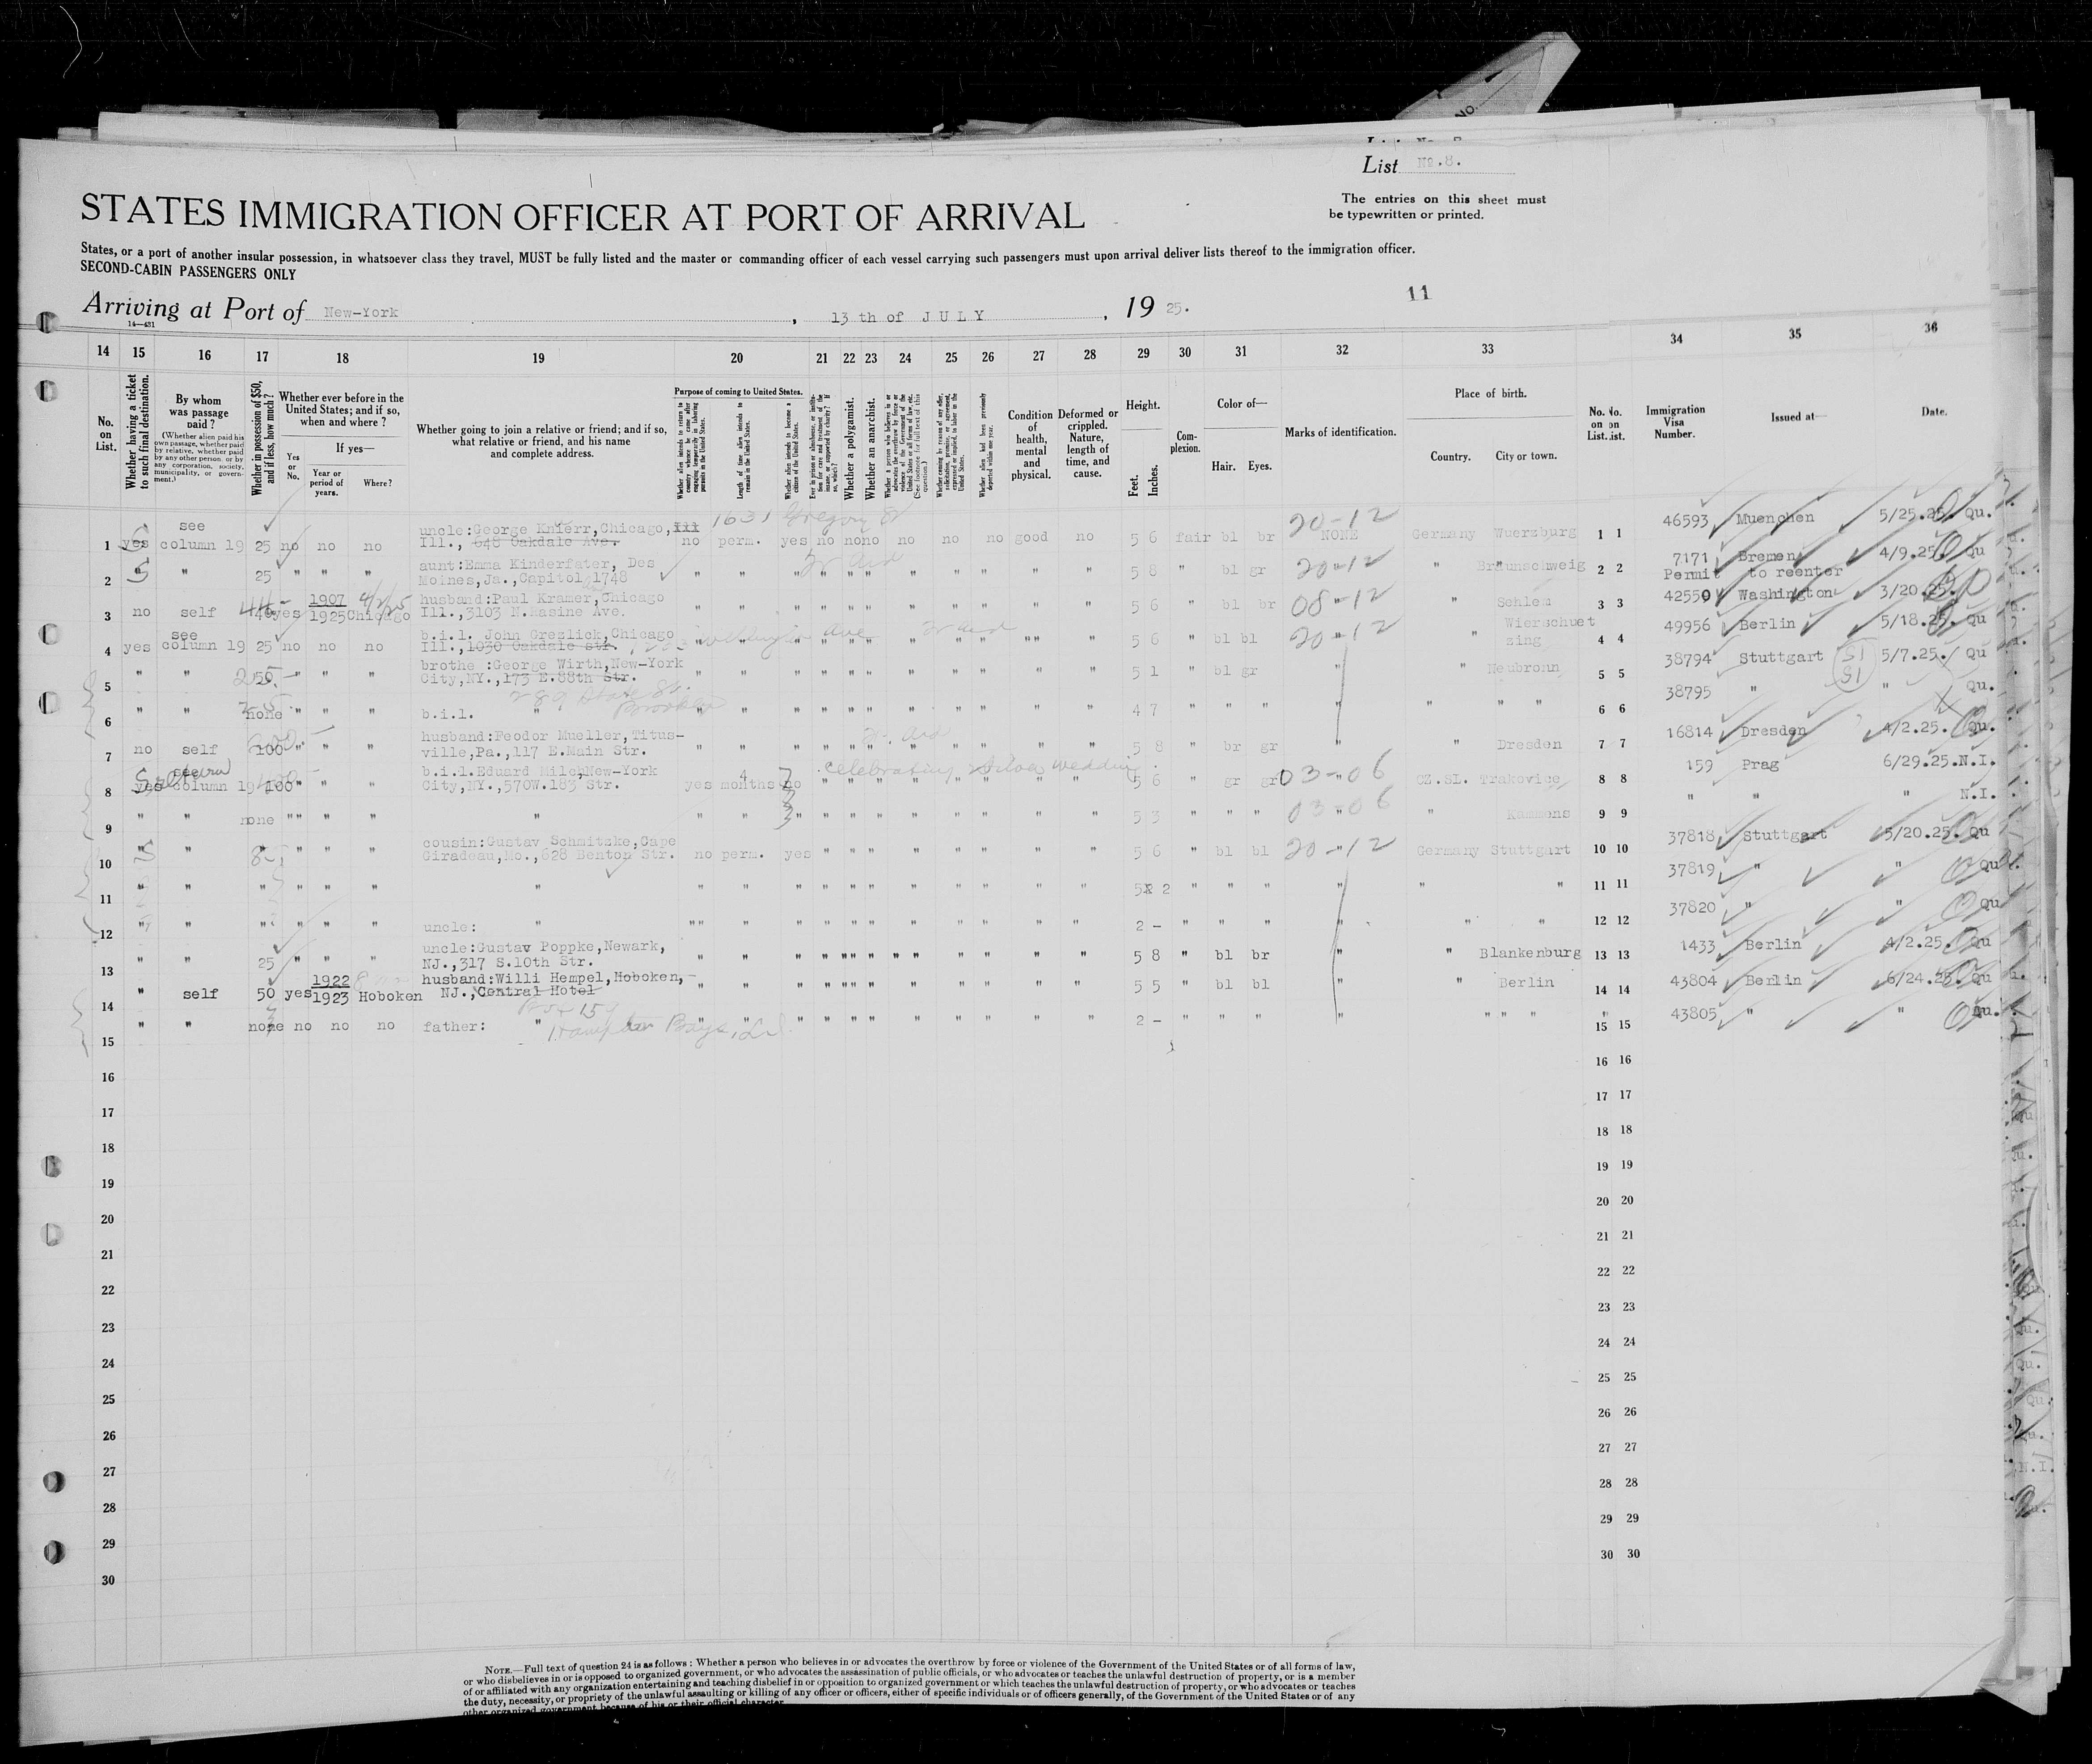 List No.8.
The entries on this sheet must
be typewritten or printed.
STATES IMMIGRATION OFFICER AT PORT OF ARRIVAL
States, or a port of another insular possession, in whatsoever class they travel, MUST be fully listed and the master or commanding officer of each vessel carrying such passengers must upon arrival deliver lists thereof to the immigration officer.
SECOND-CABIN PASSENGERS ONLY
11
Arriving at Port of New-York, 13 th of JULY, 19 25.
14—431
14 15 16 17 18 19 20 21 22 23 24 25 26 27 28 29 30 31 32 33 34 35 36
No. on List.
Whether having a ticket to such final destination.
By whom was passage paid?
(Whether alien paid his own passage, whether paid by relative, whether paid by any other person, or by any corporation, society, municipality, or government.)
Whether in possession of $50, and if less, how much?
Whether ever before in the United States; and if so, when and where?
If yes—
Yes or No.
Year or period of years.
Where?
Whether going to join a relative or friend; and if so, what relative or friend, and his name and complete address.
Purpose of coming to United States.
Whether alien intends to return to country whence he came after engaging temporarily in laboring pursuits in the United States.
Length of time alien intends to remain in the United States.
Whether alien intends to become a citizen of the United States.
Whether a polygamist.
Whether an anarchist.
Condition of health, mental and physical.
Deformed or crippled. Nature, length of time, and cause.
Height.
Feet. Inches.
Complexion.
Color of—
Hair. Eyes.
Marks of identification.
Place of birth.
Country. City or town.
No. on List.
Immigration Visa Number.
Issued at—
Date.
1631 Gregory St
see uncle:George Knierr,Chicago,Ill 20-12 46593 Muenchen 5/25.25. Qu.
1 yes column 19 25 no no no Ill., 648 Oakdale Ave. no perm. yes no no no no no no good no 5 6 fair bl br NONE Germany Wuerzburg 1 1
aunt:Emma Kinderfater, Des 7171 Bremen 4/9.25. Qu
2 " " 25 " " " Moines,Ja.,Capitol 1748 " " " " " " " " " " " 5 8 " bl gr 20-12 " Braunschweig 2 2
Permit to reenter
1907 husband:Paul Kramer,Chicago 42550 Washington 3/20.25.
3 no self 40 yes 1925 Chicago Ill.,3103 N.Rasine Ave. " " " " " " " " " " " 5 6 " bl br 08-12 " Sehlem 3 3
see b.i.l. John Grezlick,Chicago 20-12 Wierschuet 49956 Berlin 5/18.25. Qu
4 yes column 19 25 no no no Ill.,1030 Oakdale Str. " " " " " " " " " "" " 5 6 " bl bl " " zing 4 4
brothe :George Wirth,New-York 38794 Stuttgart 5/7.25. Qu
5 " " 50 " " " City,NY.,173 E.88th Str. " " " " " " " " " " " 5 1 " bl gr " " Neubronn 5 5
289 State St. Brooklyn
38795 " " Qu.
6 " " none " " " b.i.l. " " " " " " " " " " " " 4 7 " " " " " " " 6 6
husband:Feodor Mueller,Titus- 16814 Dresden 4/2.25. Qu.
7 no self 100 " " " ville,Pa.,117 E.Main Str. " " " " " " " " " " " 5 8 " br gr " " Dresden 7 7
celebrating silver wedding
b.i.l.Eduard Milch,New-York 159 Prag 6/29.25.N.I.
8 yes column 19 100 " " " City,NY.,570W.183 Str. yes 4 months no " " " " " " " " 5 6 " gr gr 03-06 CZ.SL. Trakovice 8 8
" " " N.I.
9 " " none " " " " " " " " " " " " " " " " 5 3 " " " 03-06 " Kammens 9 9
cousin:Gustav Schmitzke,Cape 37818 Stuttgart 5/20.25. Qu
10 " " 85 " " " Giradeau,Mo.,628 Benton Str. no perm. yes " " " " " " " " 5 6 " bl bl 20-12 Germany Stuttgart 10 10
37819 " " Qu
11 " " " " " " " " " " " " " " " " " " " 5 2 " " " " " " 11 11
37820 " " Qu
12 " " " " " " uncle: " " " " " " " " " " " " 2 - " " " " " " 12 12
uncle:Gustav Poppke,Newark, 1433 Berlin 4/2.25. Qu
13 " " 25 " " " NJ.,317 S.10th Str. " " " " " " " " " " " 5 8 " bl br " " Blankenburg 13 13
1922 husband:Willi Hempel,Hoboken, 43804 Berlin 6/24.25. Qu
14 " self 50 yes 1923 Hoboken NJ.,Central Hotel " " " " " " " " " " " 5 5 " bl bl " " Berlin 14 14
Box 159
Hampton Bays, L.I.
43805 " " Qu.
15 " " none no no no father: " " " " " " " " " " " " 2 - " " " " " " " 15 15
16 16 16
17 17 17
18 18 18
19 19 19
20 20 20
21 21 21
22 22 22
23 23 23
24 24 24
25 25 25
26 26 26
27 27 27
28 28 28
29 29 29
30 30 30
NOTE.—Full text of question 24 is as follows: Whether a person who believes in or advocates the overthrow by force or violence of the Government of the United States or of all forms of law,
or who disbelieves in or is opposed to organized government, or who advocates the assassination of public officials, or who advocates or teaches the unlawful destruction of property, or is a member
of or affiliated with any organization entertaining and teaching disbelief in or opposition to organized government or which teaches the unlawful destruction of property, or who advocates or teaches
the duty, necessity, or propriety of the unlawful assaulting or killing of any officer or officers, either of specific individuals or of officers generally, of the Government of the United States or of any
other organized government because of his or their official character.